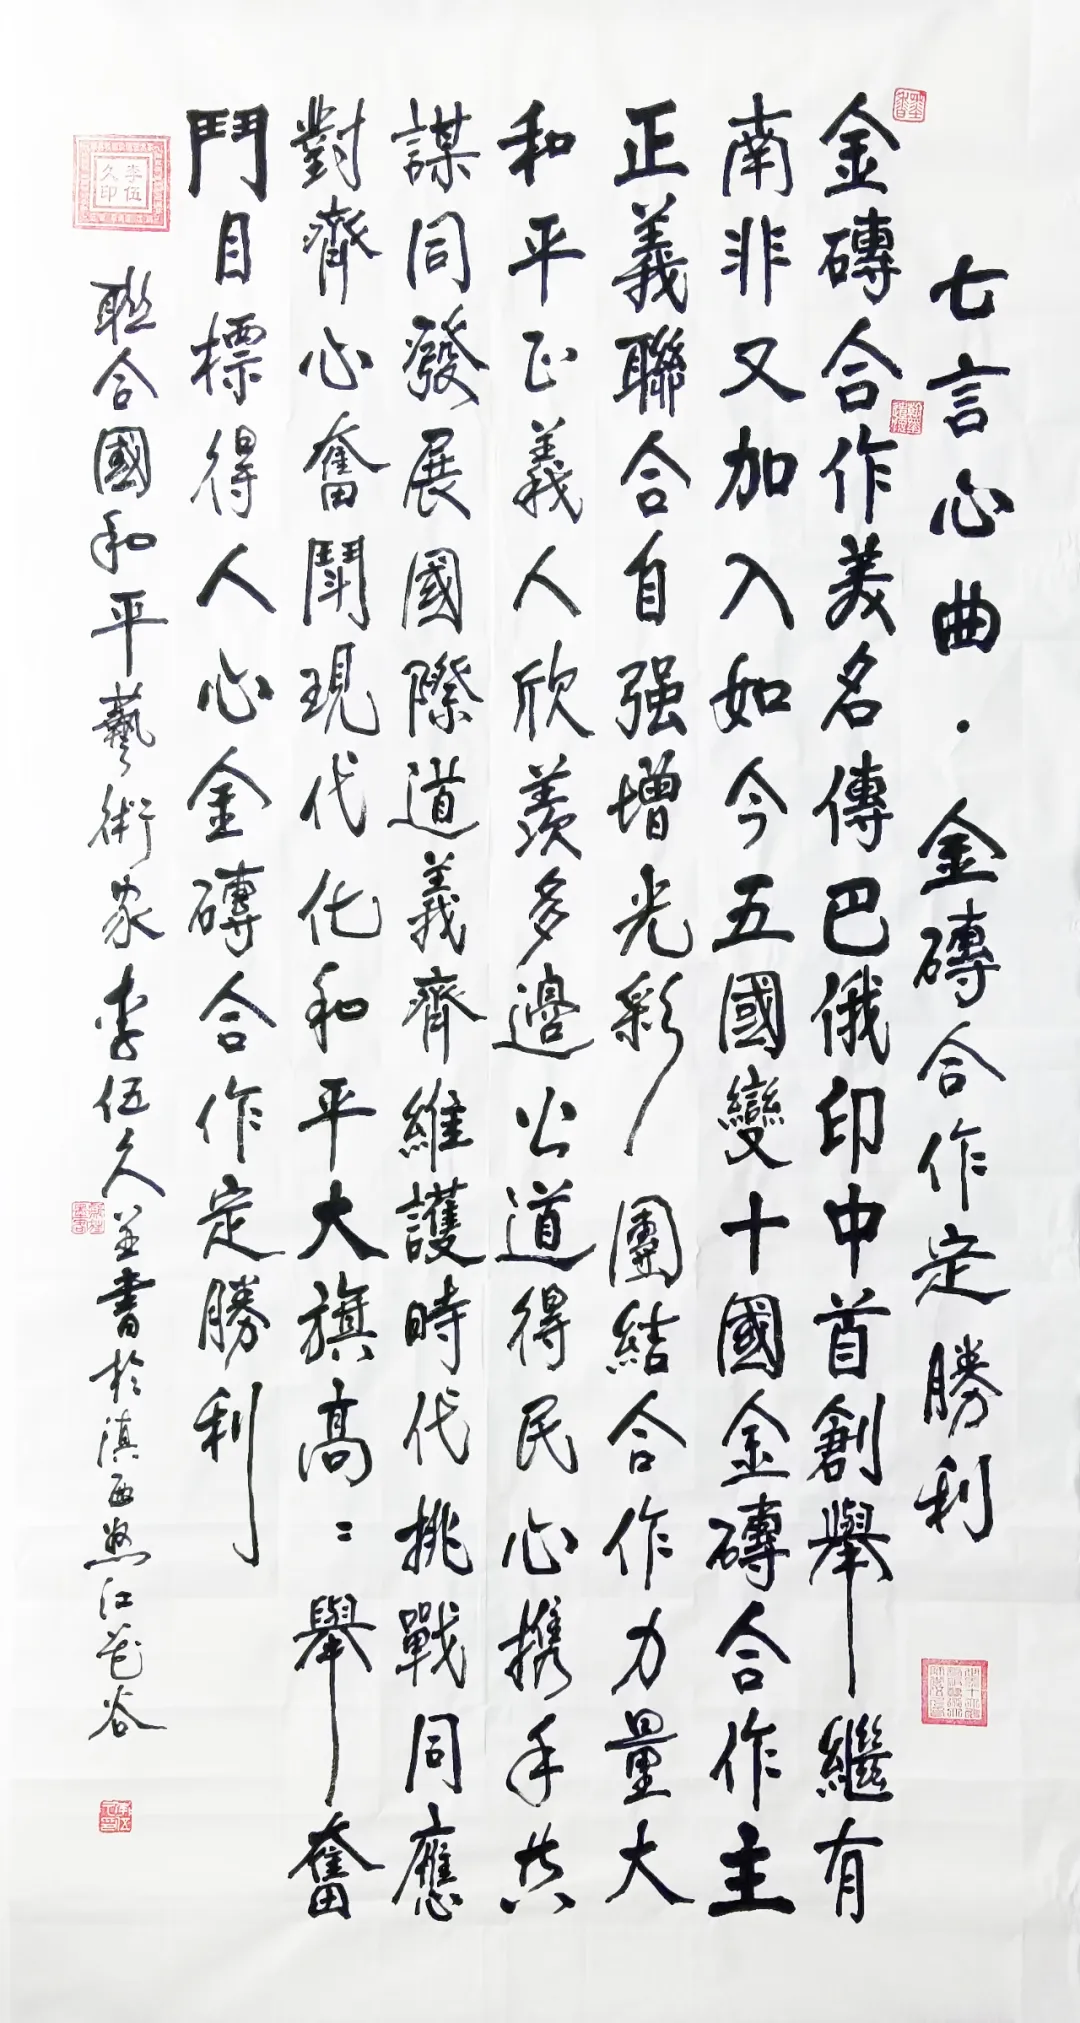 七言心曲·金磚合作定勝利
金磚合作美名傳巴俄印中首創舉繼有
南非又加入如今五國變十國金磚合作主
正義聯合自强增光彩團結合作力量大
和平正義人欣羨多邊公道得民心携手共
謀同發展國際道義齊維護時代挑戰同應
對齊心奮鬭現代化和平大旗高〻舉奮
鬥目標得人心金磚合作定勝利
聯合國和平藝術家李伍久並書於滇西怒江花谷
李伍
久印